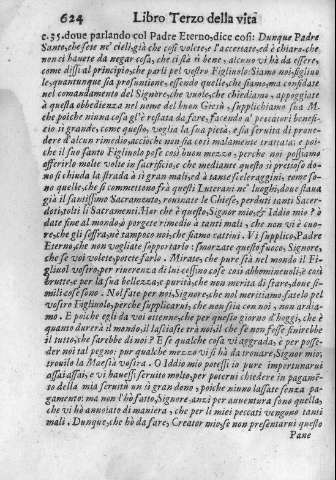 624 Libro Terzo della vita
c.35. doue parlando col Padre Eterno, dice così: Dunque Padre
Santo, che sete ne' cieli, già che così volete, e l'accettate, ed è chiaro, che
non ci hauete da negar cosa, che ci stà sì bene, alcuno vi hà da essere,
come dissi al principio, che parli pel vostro Figliuolo: Siamo noi, figliuo
le, quantunque sia prosuntione, essendo quelle, che siamo, ma confidate
nel comandamento del Signore, che vuole, che chiediamo, appoggiate
à questa obbedienza nel nome del buon Giesù, supplichiamo sua M.
che poiche niuna cosa gl'è restata da fare, facendo a' peccatori benefi-
cio sì grande, come questo, voglia la sua pietà, e sia seruita di proue-
dere d'alcun rimedio, acciochè non sia così malamente trattato; e poi-
che il suo santo Figliuolo pose così buon mezzo, perche noi possiamo
offerirlo molte volte in sacrificio, e che mediante questo sì pretioso do-
no si chiuda la strada à sì gran mali, ed à tante sceleraggini, come so-
no quelle, che si commettono frà questi Luterani ne' luoghi, doue staua
già il santissimo Sacramento, rouinate le Chiese, perduti tanti Sacer-
doti, tolti li Sacramenti. Hor che è questo, Signor mio, & Iddio mio? ò
date fine al mondo, ò porgete rimedio à tanti mali, che non vi è cuo-
re, che gli soffra, nè tampoco noi, che siamo cattiui. Vi supplico, Padre
Eterno, che non vogliate sopportarlo: smorzate questo fuoco, Signore,
che se voi volete, potete farlo. Mirate, che pure stà nel mondo il Fi-
gliuol vostro, per riuerenza di lui cessino cose così abbomineuoli, e così
brutte, e per la sua bellezza, e purità, che non merita di stare, doue si-
mili cose sono. Nol fate per noi, Signore, che nol meritiamo, fatelo pel
vostro Figliuolo, perche supplicarui, che non stia con noi, non ardia-
mo. E poiche egli da voi ottenne, che per questo giorno d'hoggi, che è
quanto durerà il mondo, il lasciaste trà noi, il che se non fosse finirebbe
il tutto, che sarebbe di noi? E se qualche cosa vi aggrada, è per posse-
der noi tal pegno: pur qualche mezzo vi si hà da trouare, Signor mio;
trouilo la Maestà vostra. O Iddio mio potessi io pure importunarui
assai assai, e vi hauessi seruito molto, per poterui chiedere in pagamẽ-
to della mia seruitù un sì gran dono, poiche niuno lasciate senza pa-
gamento: ma non l'hò fatto, Signore, anzi per auuentura sono quella,
che vi hò annoiato di maniera, che per li miei peccati vengono tanti
mali. Dunque, che hò da fare, Creator mio, se non presentarui questo
Pane